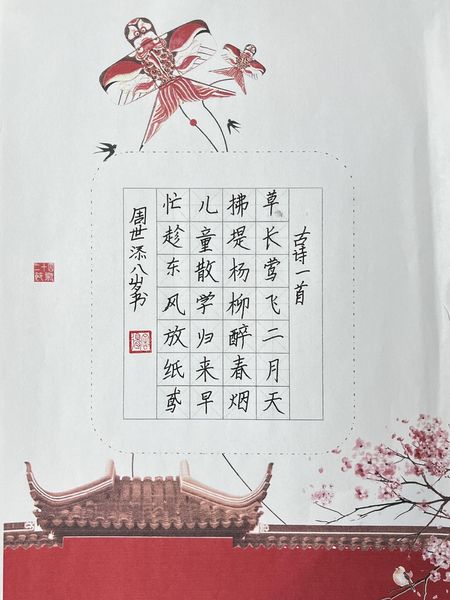 古诗一首
草长莺飞二月天
拂堤杨柳醉春烟
儿童散学归来早
忙趁东风放纸鸢
周世添八岁书